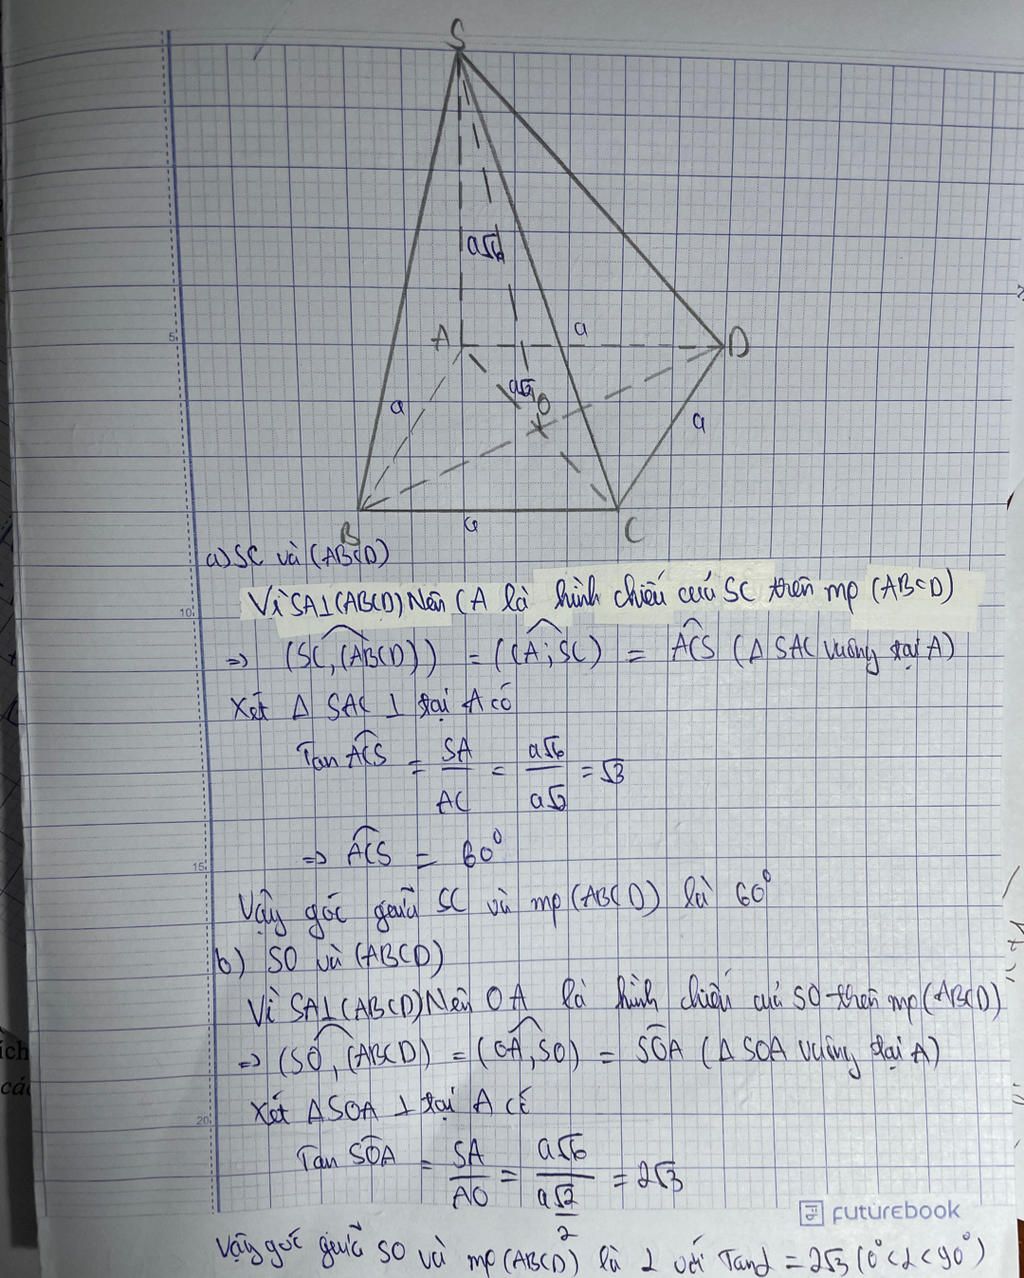 S
a√6
A
a
D
a√2
O
a
a
B
a
C
a) SC và (ABCD)
Vì SA⊥(ABCD) Nên CA là hình chiếu cuả SC trên mp (ABCD)
=> (SC, (ABCD)) = (CA; SC) = ACS (Δ SAC vuông tại A)
5
10
Xét Δ SAC ⊥ tại A có
Tan ACS = SA/AC = a√6/a√2 = √3
=> ACS = 60°
15
Vậy góc giữa SC và mp (ABCD) là 60°
b) SO và (ABCD)
Vì SA⊥(ABCD) Nên OA là hình chiếu cuả SO trên mp(ABCD)
=> (SO, (ABCD) = (OA, SO) = SOA (Δ SOA vuông tại A)
ích
các
Xét Δ SOA ⊥ tại A có
20
Tan SOA = SA/AO = a√6/(a√2/2) = 2√3
FUTUREBOOK
Vậy góc giữa SO và mp (ABCD) là α với Tanα = 2√3 (0° < α < 90°)